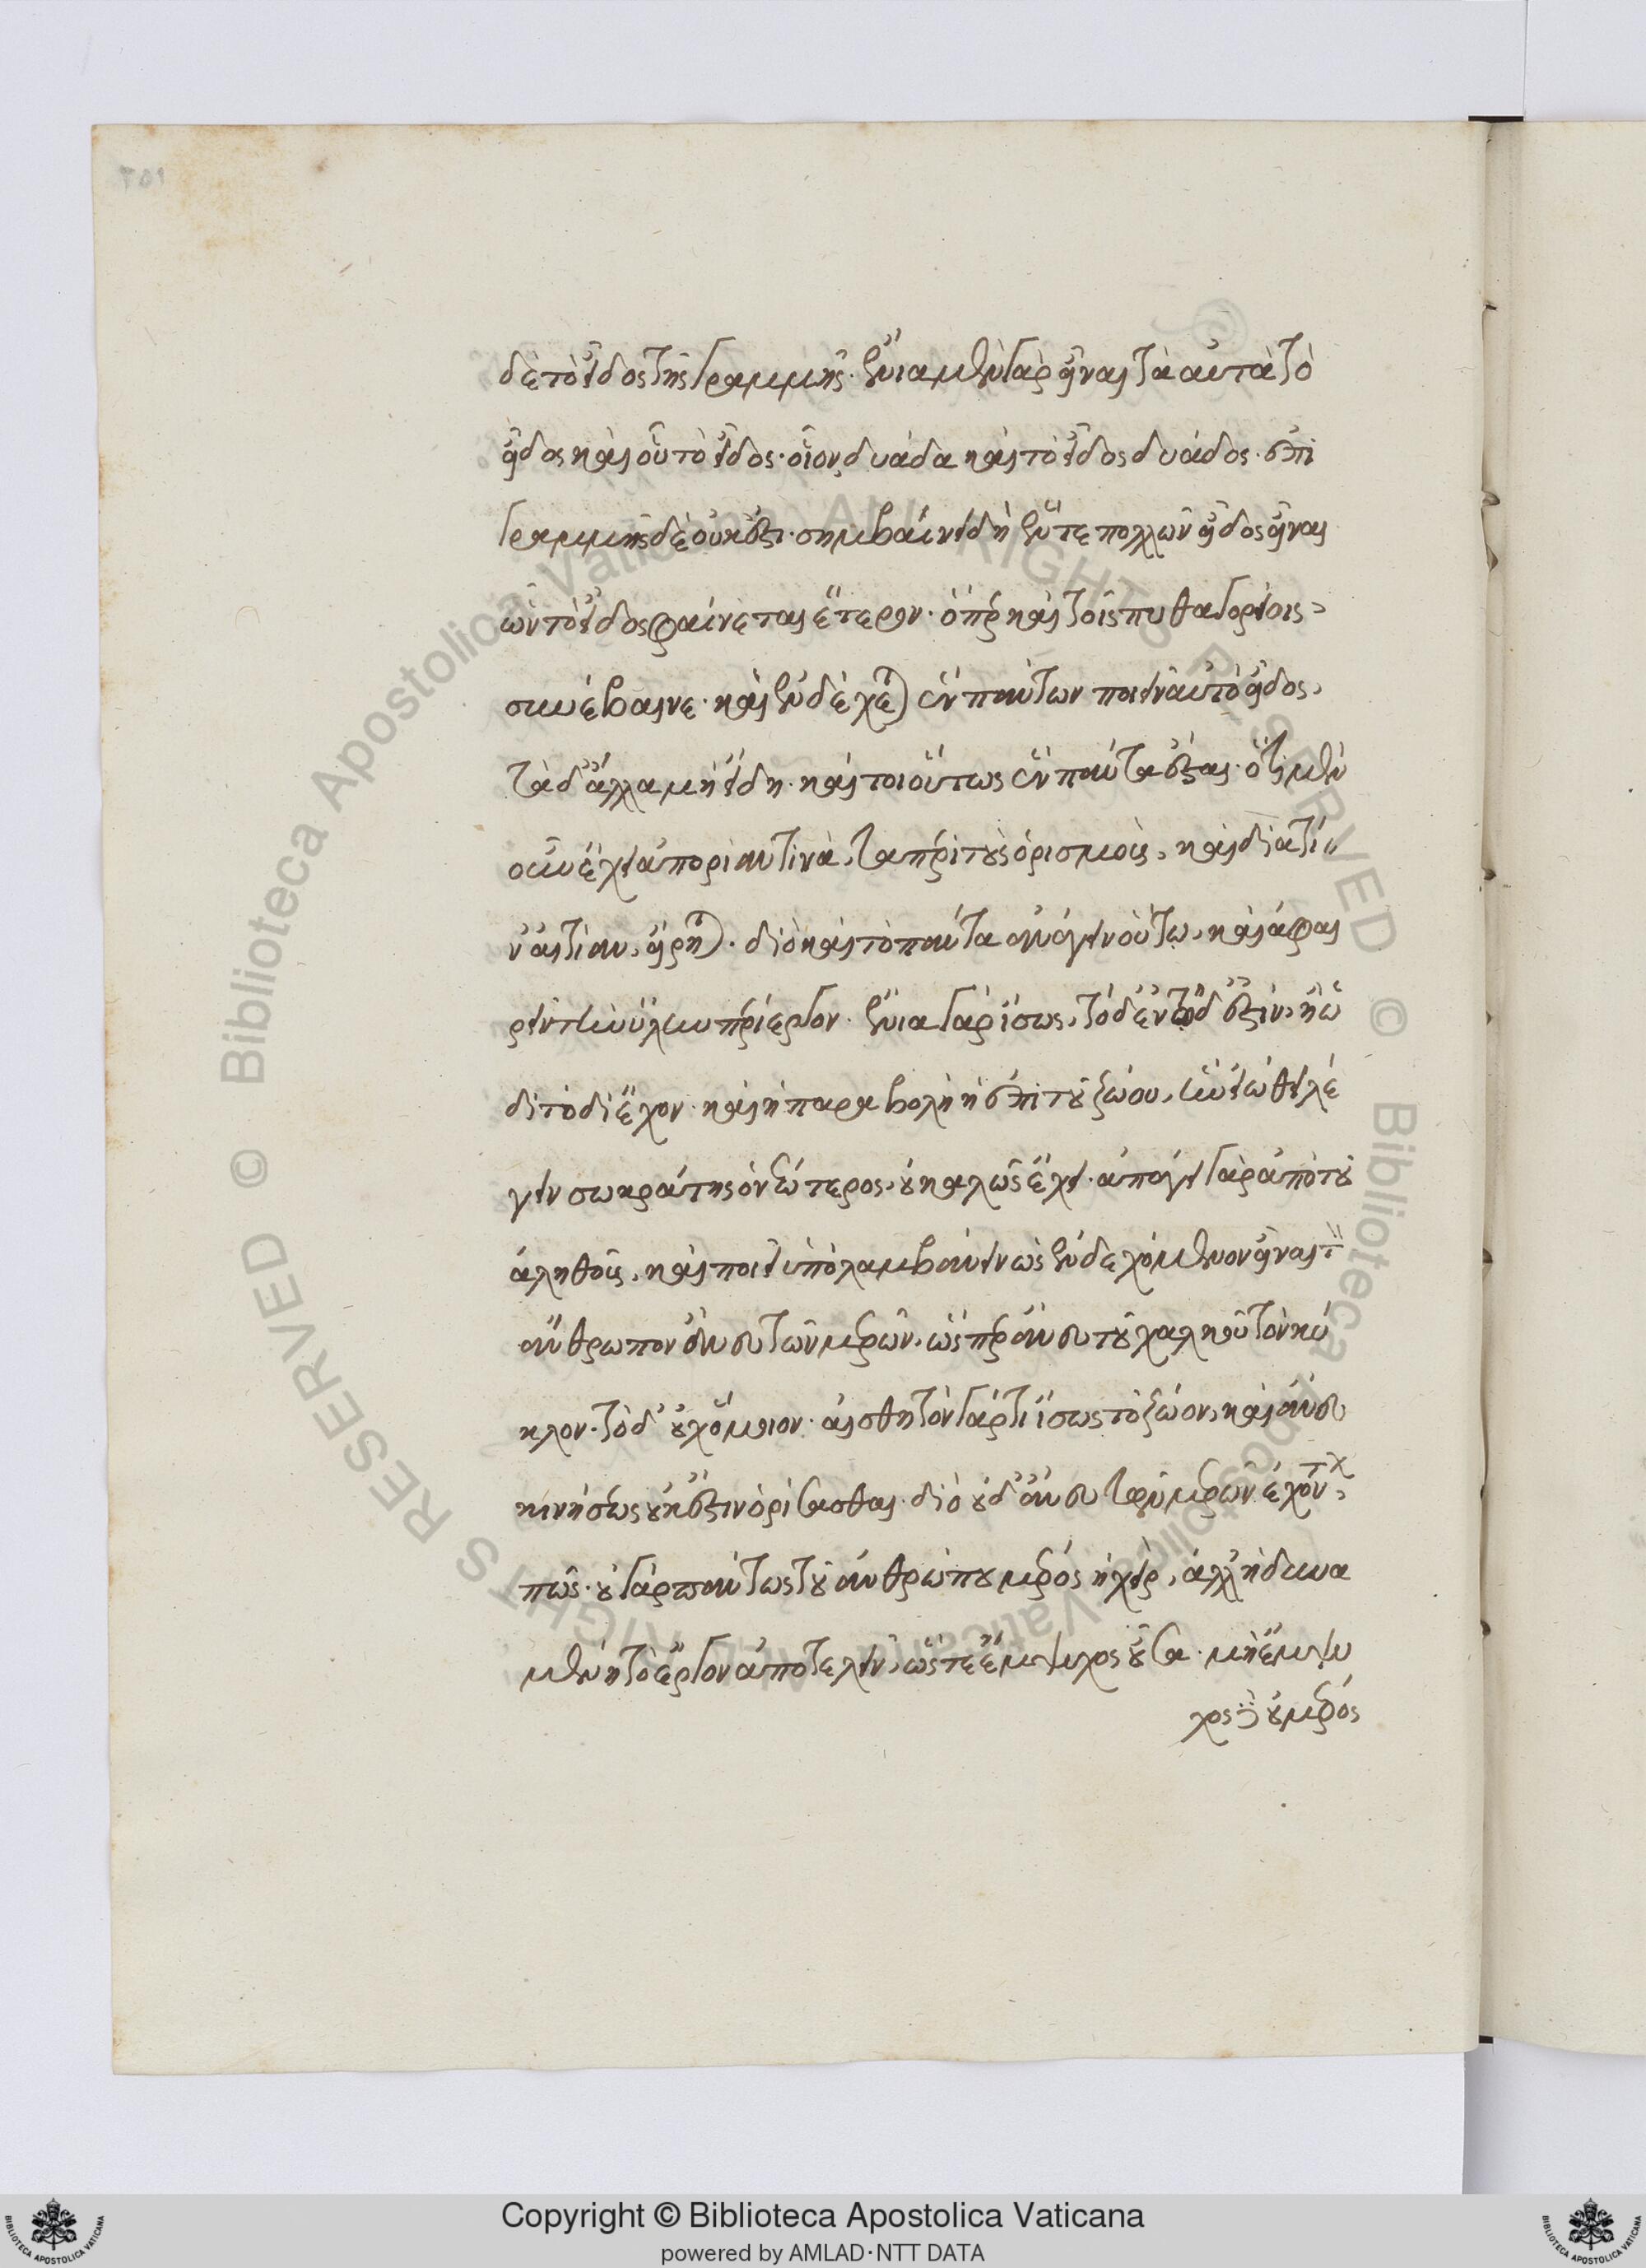 δὲ τὸ εἶδος τῆς γραμμῆς. ἔνια μὲν γὰρ εἶναι τὰ αὐτὰ τὸ
εἶδος καὶ οὗ τὸ εἶδος. οἷον δυάδα καὶ τὸ εἶδος δυάδος. ἐπὶ
γραμμῆς δὲ οὐκ ἔστι. συμβαίνει δὴ ἕν τε πολλῶν εἶδος εἶναι
ὧν τὸ εἶδος φαίνεται ἕτερον. ὅπερ καὶ τοῖς πυθαγορείοις
συνέβαινε. καὶ ἐνδέχεται ἓν πάντων ποιεῖν αὐτὸ εἶδος,
τὰ δ' ἄλλα μὴ εἴδη. καίτοι οὕτως ἓν πάντα ἔσται. ὅτι μὲν
οὖν ἔχει ἀπορίαν τινὰ, τὰ περὶ τοὺς ὁρισμοὺς, καὶ διὰ τί-
ν' αἰτίαν, εἴρηται. διὸ καὶ τὸ πάντα ἀνάγειν οὕτω, καὶ ἀφαι
ρεῖν τὴν ὕλην περίεργον. ἔνια γὰρ ἴσως, τόδ' ἐν τῷδ' ἐστὶν, ἢ ὡ
δὶ τοδὶ ἔχον. καὶ ἡ παραβολὴ ἡ ἐπὶ τοῦ ζώου, ἣν εἰώθει λέ
γειν σωκράτης ὁ νεώτερος, οὐ καλῶς ἔχει. ἀπάγει γὰρ ἀπὸ τοῦ
ἀληθοῦς, καὶ ποιεῖ ὑπολαμβάνειν ὡς ἐνδεχόμενον εἶναι τὸν
ἄνθρωπον ἄνευ τῶν μερῶν, ὥσπερ ἄνευ τοῦ χαλκοῦ τὸν κύ
κλον. τὸ δ' οὐχ ὅμοιον. αἰσθητὸν γάρ τι ἴσως τὸ ζῷον, καὶ ἄνευ
κινήσεως οὐκ ἔστιν ὁρίσασθαι. διὸ οὐδ' ἄνευ τῶν μερῶν ἐχόντων
πῶς. οὐ γὰρ πάντως τοῦ ἀνθρώπου μέρος ἡ χεὶρ, ἀλλ' ἡ δυνα
μένη τὸ ἔργον ἀποτελεῖν, ὥστε ἔμψυχος οὖσα. μὴ ἔμψυ
χος δὲ οὐ μέρος